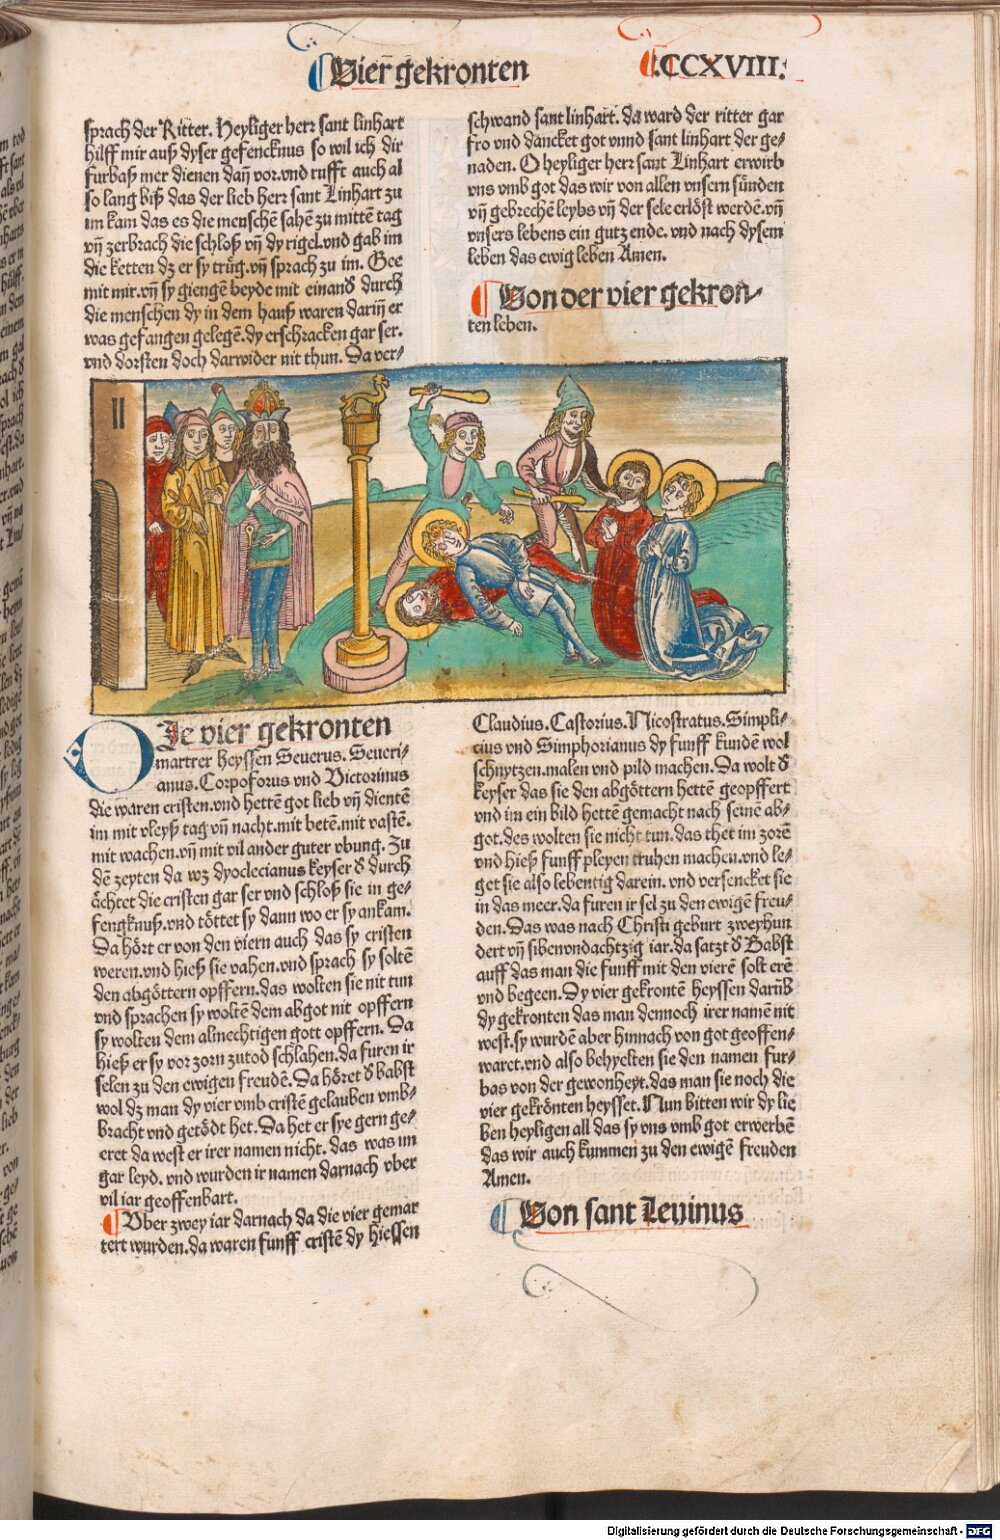 Vier gekronten
.CCXVIII.
sprach der Ritter. Heyliger herr sant linhart
hilff mir auß dyser gefencknus so wil ich dir
furbaß mer dienen dañ vor. vnd rufft auch al
so lang biß das der lieb herr sant Linhart zu
im kam das es die menschē sahē zu mittē tag
vñ zerbrach die schloß vñ dy rigel. vnd gab im
die ketten dz er sy trůg. vñ sprach zu im. Gee
mit mir. vñ sy giengē beyde mit einand̄ durch
die menschen dy in dem hauß waren dariñ er
was gefangen gelegē. dy erschracken gar ser.
vnd dorsten doch darwider nit thun. Da ver-
schwand sant linhart. da ward der ritter gar
fro vnd dancket got vnnd sant linhart der ge-
naden. O heyliger herr sant Linhart erwirb
vns vmb got das wir von allen vnsern sünden
vñ gebrechē leybs vñ der sele erlöst werdē. vñ
vnsers lebens ein gutz ende. vnd nach dysem
leben das ewig leben Amen.
Von der vier gekron-
ten leben.
DJe vier gekronten
martrer heyssen Seuerus. Seueri-
anus. Corpoforus vnd Victorinus
die waren cristen. vnd hettē got lieb vñ dientē
im mit vleyß tag vñ nacht. mit betē. mit vastē.
mit wachen. vñ mit vil ander guter vbung. Zu
dē zeyten da wz dyoclecianus keyser d̄ durch
ächtet die cristen gar ser vnd schloß sie in ge-
fengknuß. vnd töttet sy dann wo er sy ankam.
Da hört er von den viern auch das sy cristen
weren. vnd hieß sie vahen. vnd sprach sy soltē
den abgöttern opffern. das wolten sie nit tun
vnd sprachen sy woltē dem abgot nit opffern
sy wolten dem almechtigen gott opffern. Da
hieß er sy vor zorn zutod schlahen. da furen ir
selen zu den ewigen freudē. Da höret d̄ babst
wol dz man dy vier vmb cristē gelauben vmb-
bracht vnd getödt het. Da het er sye gern ge-
eret da west er irer namen nicht. das was im
gar leyd. vnd wurden ir namen darnach vber
vil iar geoffenbart.
Vber zwey iar darnach da die vier gemar
tert wurden. da waren funff cristē dy hiessen
Claudius. Castorius. Nicostratus. Simpli-
cius vnd Simphorianus dy funff kundē wol
schnytzen. malen vnd pild machen. Da wolt d̄
keyser das sie den abgöttern hettē geopffert
vnd im ein bild hettē gemacht nach seinē ab-
got. des wolten sie nicht tun. das thet im zorē
vnd hieß funff pleyen truhen machen. vnd le-
get sie also lebentig darein. vnd versencket sie
in das meer. da furen ir sel zu den ewigē freu-
den. Das was nach Christi geburt zweyhun
dert vñ sibenvndachtzig iar. da satzt d̄ Babst
auff das man die funff mit den vierē solt erē
vnd begeen. Dy vier gekrontē heyssen darūb
dy gekronten das man dennoch irer namē nit
west. sy wurdē aber hinnach von got geoffen-
waret. vnd also behyelten sie den namen fur-
bas von der gewonheyt. das man sie noch die
vier gekrönten heysset. Nun bitten wir dy lie
ben heyligen all das sy vns vmb got erwerbē
das wir auch kummen zu den ewigē freuden
Amen.
Von sant Leuinus
Digitalisierung gefördert durch die Deutsche Forschungsgemeinschaft - DFG